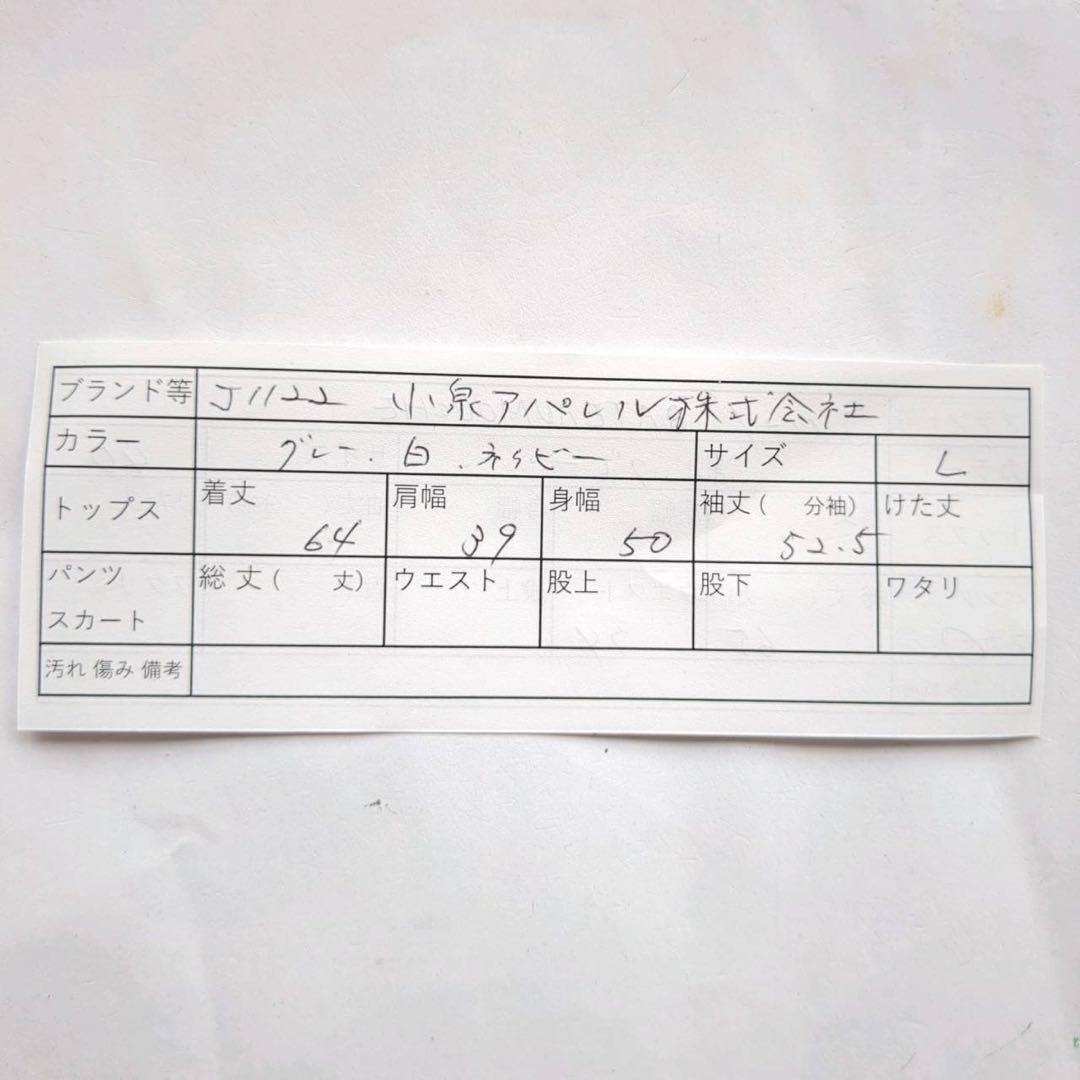 ブランド等 J1122 小泉アパレル株式会社
カラー グレー.白.ネイビー サイズ L
トップス 着丈 64 肩幅 39 身幅 50 袖丈( 分袖) 52.5 けた丈
パンツ スカート 総丈( 丈) ウエスト 股上 股下 ワタリ
汚れ 傷み 備考